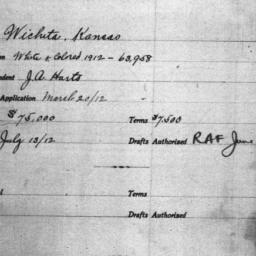 Wichita, Kansas
White & Colored 1912 - 63,958
dent J.A. Harts
Application March 20/12
$75,000 Terms $7,500
July 13/12 Drafts Authorized RAF June
Terms
Drafts Authorized